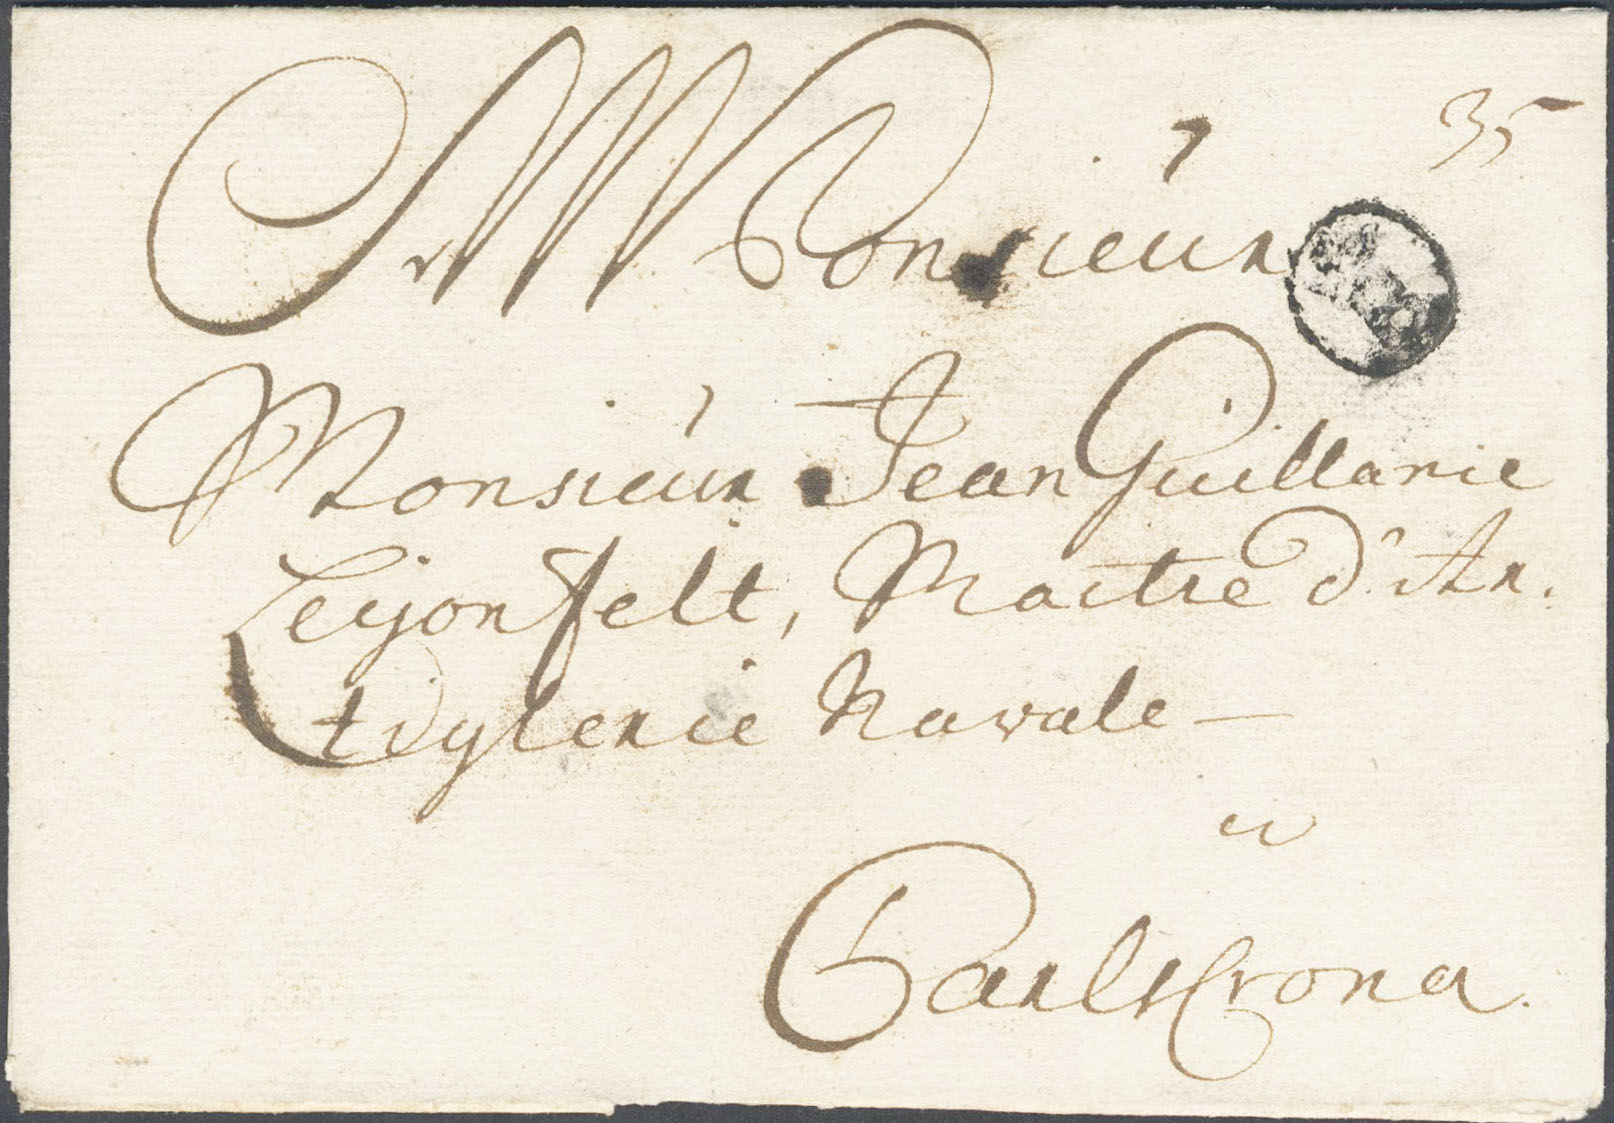 35
Monsieur
Monsieur Jean Guillanie
Leijonfelt, Maitre d'Ar.
tiylerie Navale —
a
CarlsCrona.